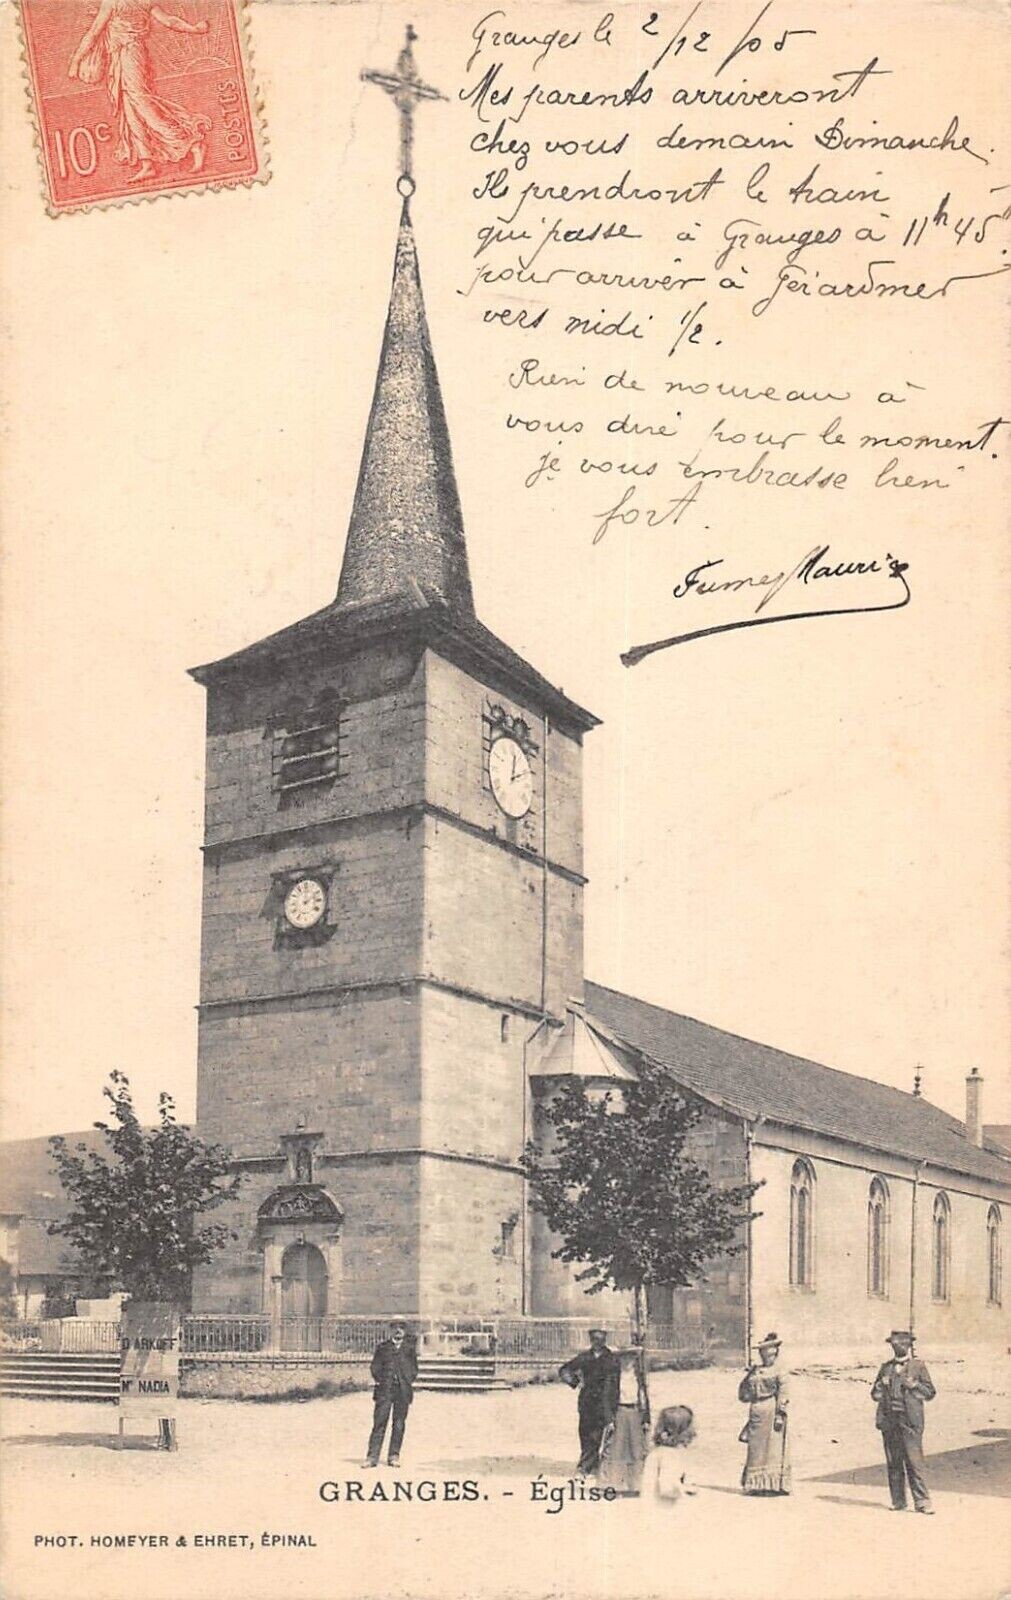 10c
POSTES
Granges le 2/12/05
Mes parents arriveront
chez vous demain Dimanche.
Ils prendront le train
qui passe à Granges à 11h45
pour arriver à Gérardmer
vers midi 1/2.
Rien de nouveau à
vous dire pour le moment.
je vous embrasse bien
fort.
Fumey Mauri
D'ARKOFF
Mme NADIA
GRANGES. - Église
PHOT. HOMEYER & EHRET, ÉPINAL